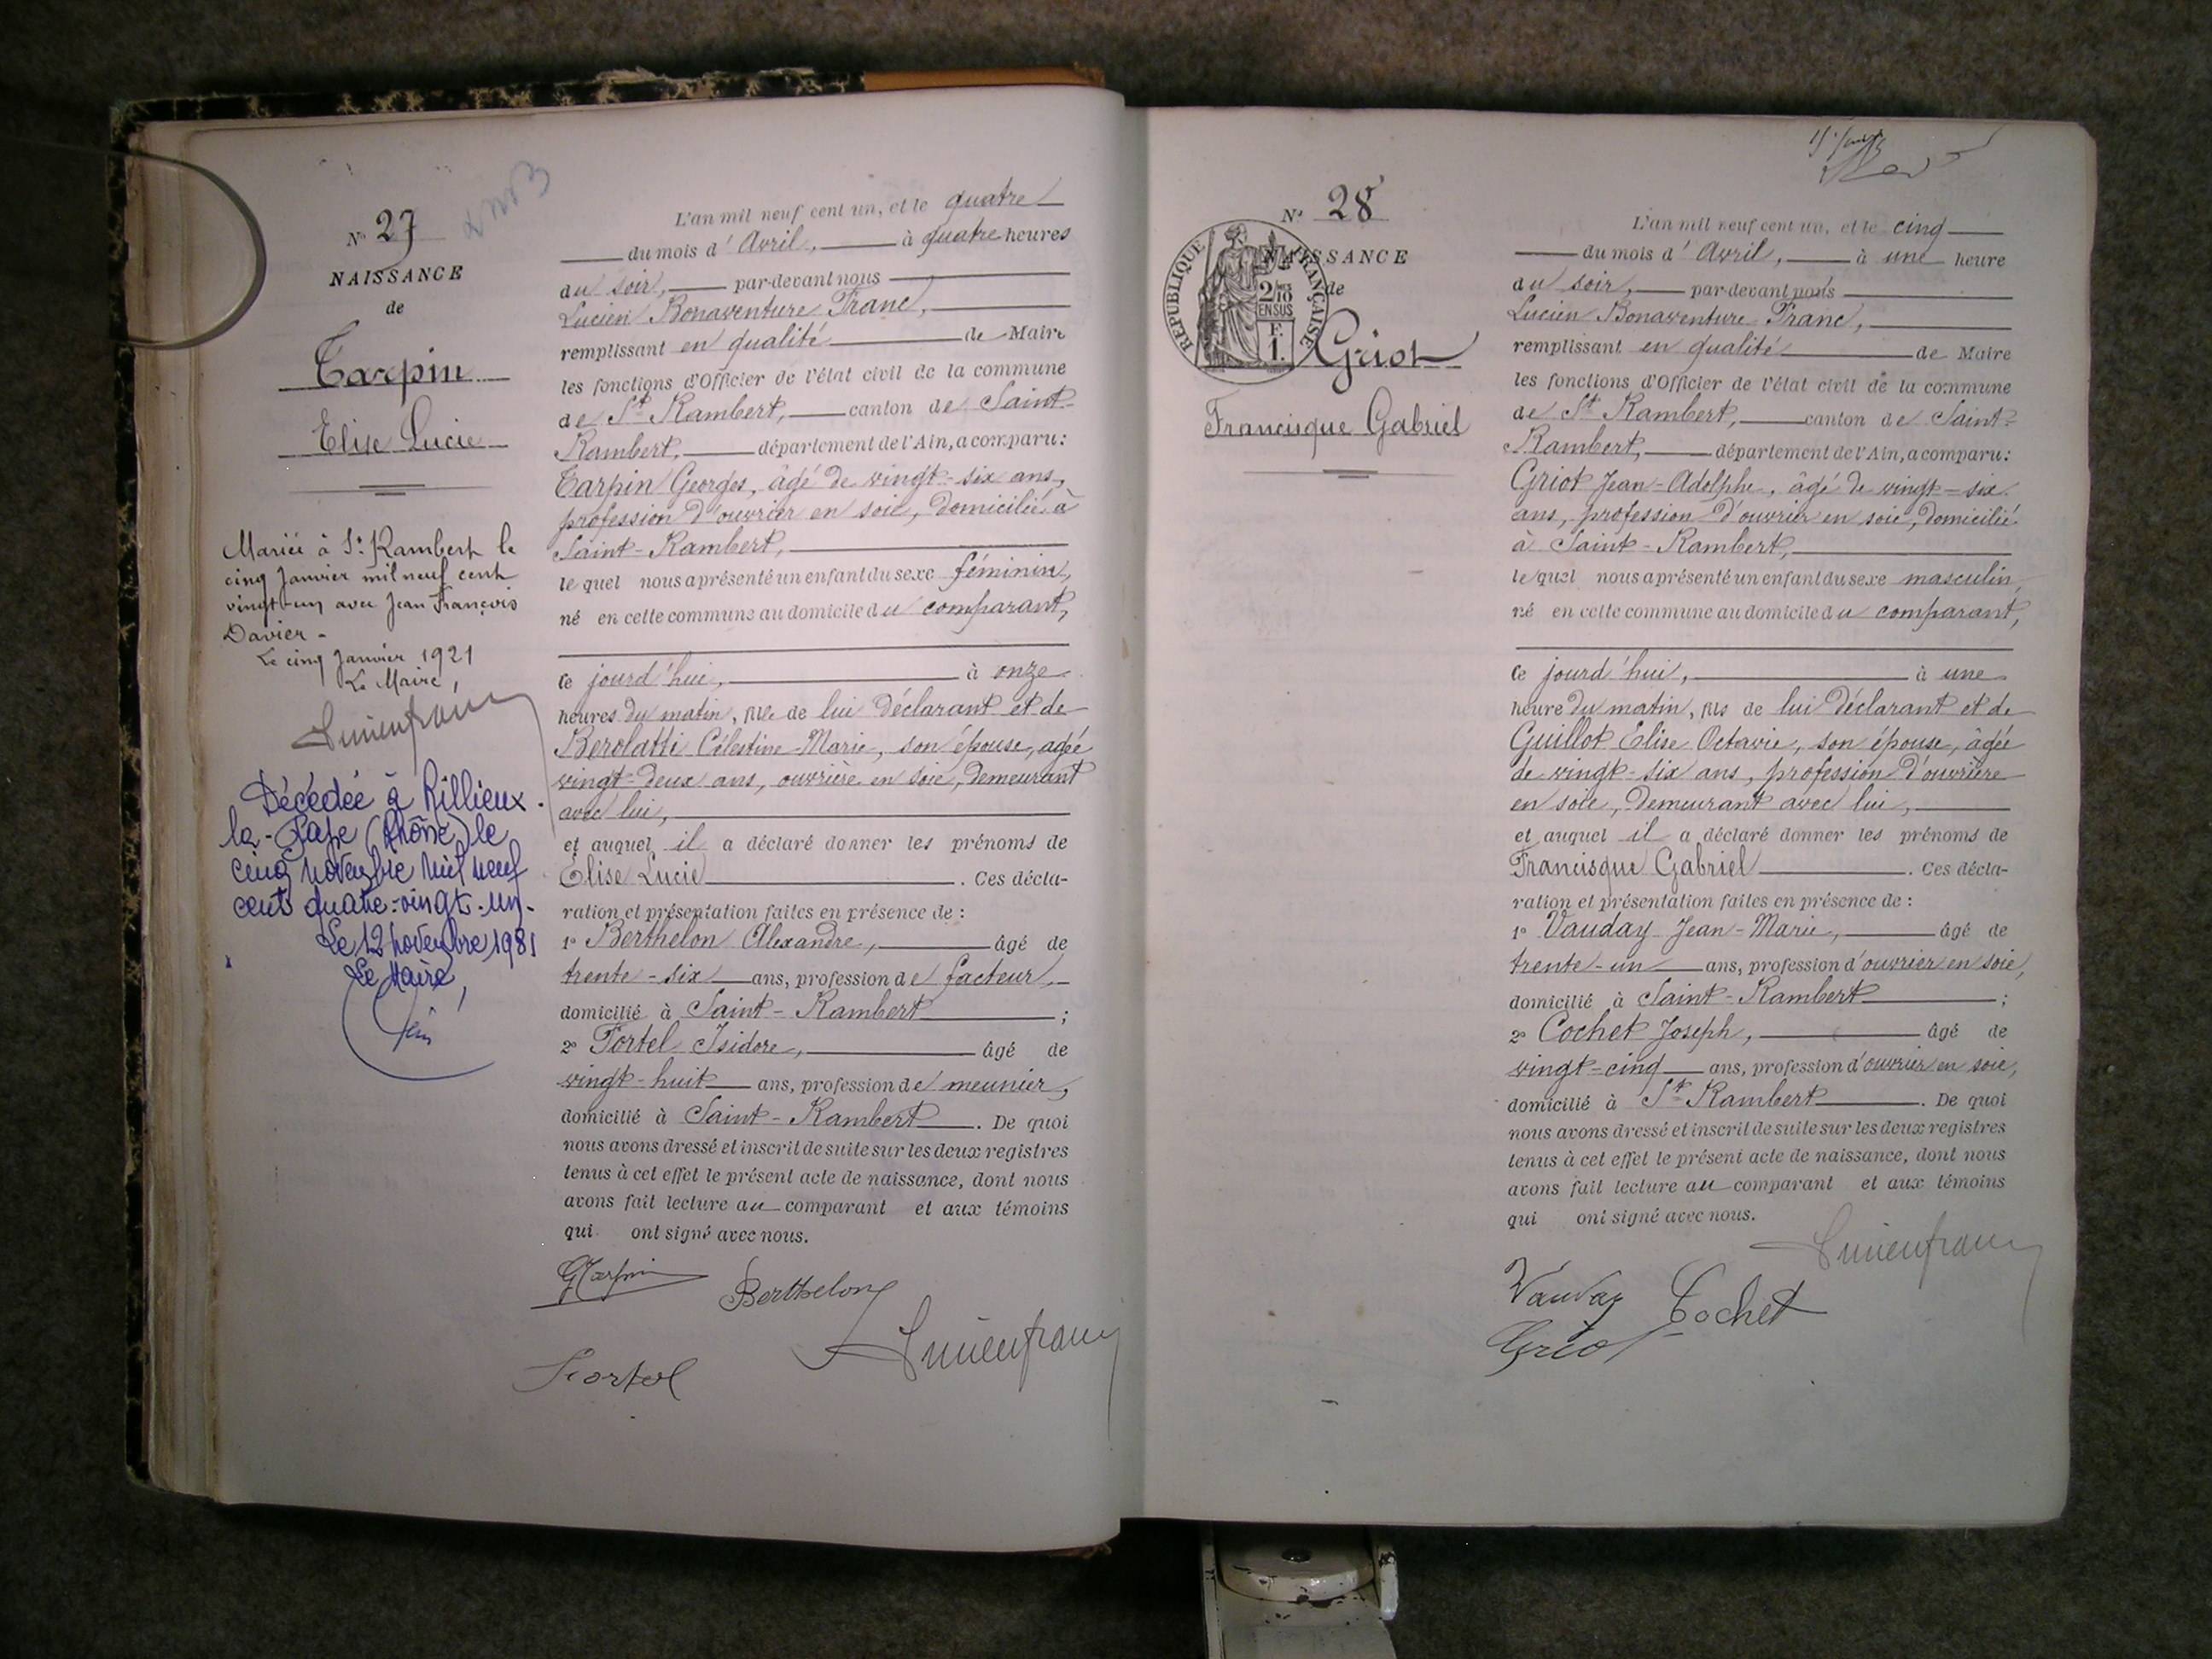 N° 27
NAISSANCE
de
Tarpin
Elise Lucie
Mariée à St Rambert le
cinq Janvier mil neuf cent
vingt-un avec Jean François
Davier -
Le cinq Janvier 1921
Le Maire,
Décédée à Rillieux-
la-Pape (Rhône) le
cinq novembre mil neuf
cent quatre-vingt-un-
Le 12 novembre 1981
Le Maire,
L'an mil neuf cent un, et le quatre
du mois d'Avril, à quatre heures
du soir, par-devant nous
Lucien Bonaventure Franc,
remplissant en qualité de Maire
les fonctions d'Officier de l'état civil de la commune
de St Rambert, canton de Saint-
Rambert, département de l'Ain, a comparu:
Tarpin Georges, âgé de vingt-six ans,
profession d'ouvrier en soie, domicilié à
Saint-Rambert,
le quel nous a présenté un enfant du sexe féminin,
né en cette commune au domicile du comparant,
ce jourd'hui, à onze
heures du matin, fille de lui déclarant et de
Berolatti Célestine-Marie, son épouse, agée
vingt-deux ans, ouvrière en soie, demeurant
avec lui,
et auquel il a déclaré donner les prénoms de
Elise Lucie. Ces décla-
ration et présentation faites en présence de :
1° Berthelon Alexandre, âgé de
trente-six ans, profession de facteur,
domicilié à Saint-Rambert ;
2° Fortel Isidore, âgé de
vingt-huit ans, profession de meunier,
domicilié à Saint-Rambert. De quoi
nous avons dressé et inscrit de suite sur les deux registres
tenus à cet effet le présent acte de naissance, dont nous
avons fait lecture au comparant et aux témoins
qui ont signé avec nous.
GTarpin Berthelon
Fortel Lucienfranc
N° 28
NAISSANCE
de
RÉPUBLIQUE FRANÇAISE
2/10
EN SUS
F.
1.
Griot
Francisque Gabriel
L'an mil neuf cent un, et le cinq
du mois d'Avril, à une heure
du soir, par-devant nous
Lucien Bonaventure Franc,
remplissant en qualité de Maire
les fonctions d'Officier de l'état civil de la commune
de St Rambert, canton de Saint-
Rambert, département de l'Ain, a comparu:
Griot Jean-Adolphe, âgé de vingt-six
ans, profession d'ouvrier en soie, domicilié
à Saint-Rambert,
le quel nous a présenté un enfant du sexe masculin,
né en cette commune au domicile du comparant,
ce jourd'hui, à une
heure du matin, fils de lui déclarant et de
Guillot Elise Octavie, son épouse, âgée
de vingt-six ans, profession d'ouvrière
en soie, demeurant avec lui,
et auquel il a déclaré donner les prénoms de
Francisque Gabriel. Ces décla-
ration et présentation faites en présence de :
1° Vauday Jean-Marie, âgé de
trente-un ans, profession d'ouvrier en soie,
domicilié à Saint-Rambert ;
2° Cochet Joseph, âgé de
vingt-cinq ans, profession d'ouvrier en soie,
domicilié à St Rambert. De quoi
nous avons dressé et inscrit de suite sur les deux registres
tenus à cet effet le présent acte de naissance, dont nous
avons fait lecture au comparant et aux témoins
qui ont signé avec nous.
Lucienfranc
Vauday Cochet
Griot